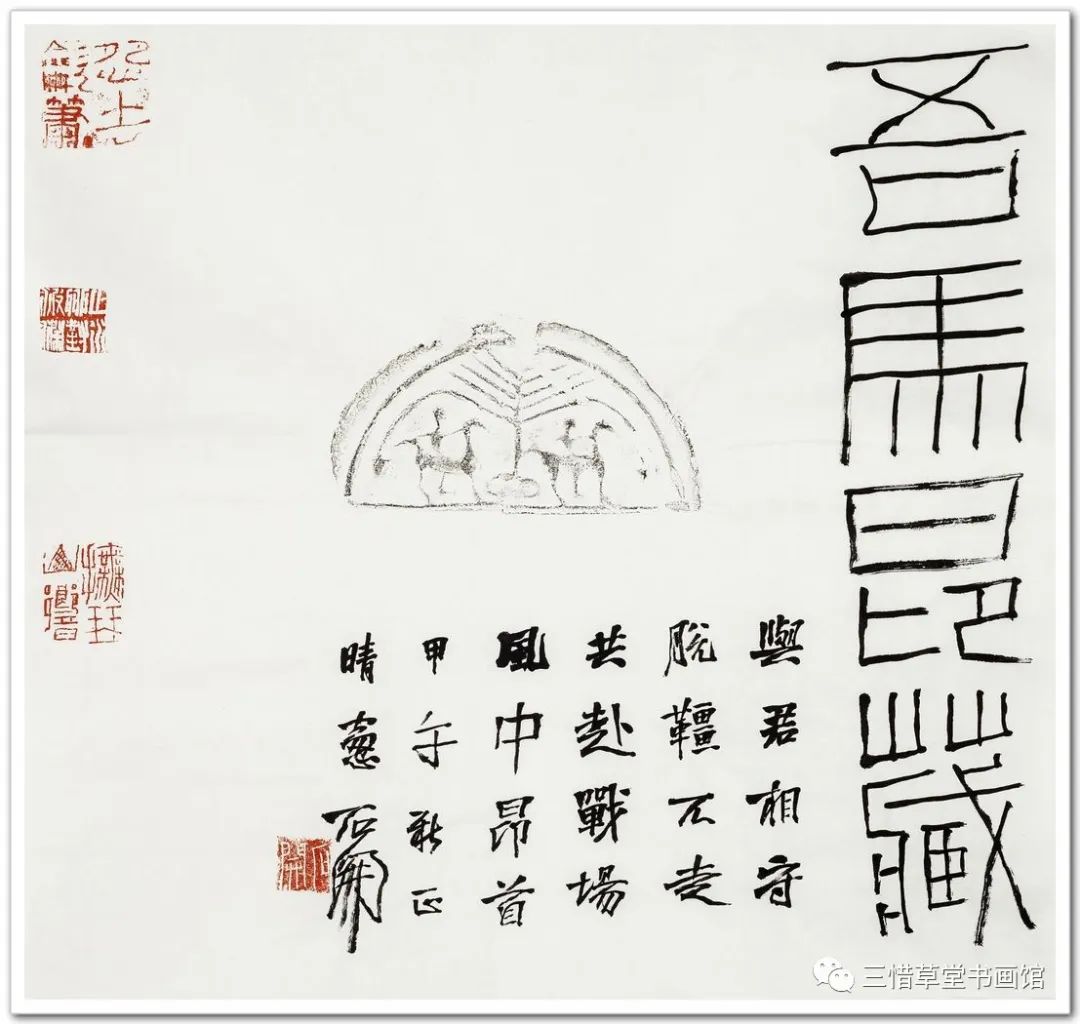 吾馬昆藏
與君相守
脫韁不走
共赴戰場
風中昂首
甲午新正
晴窻 石開
三惜草堂书画馆